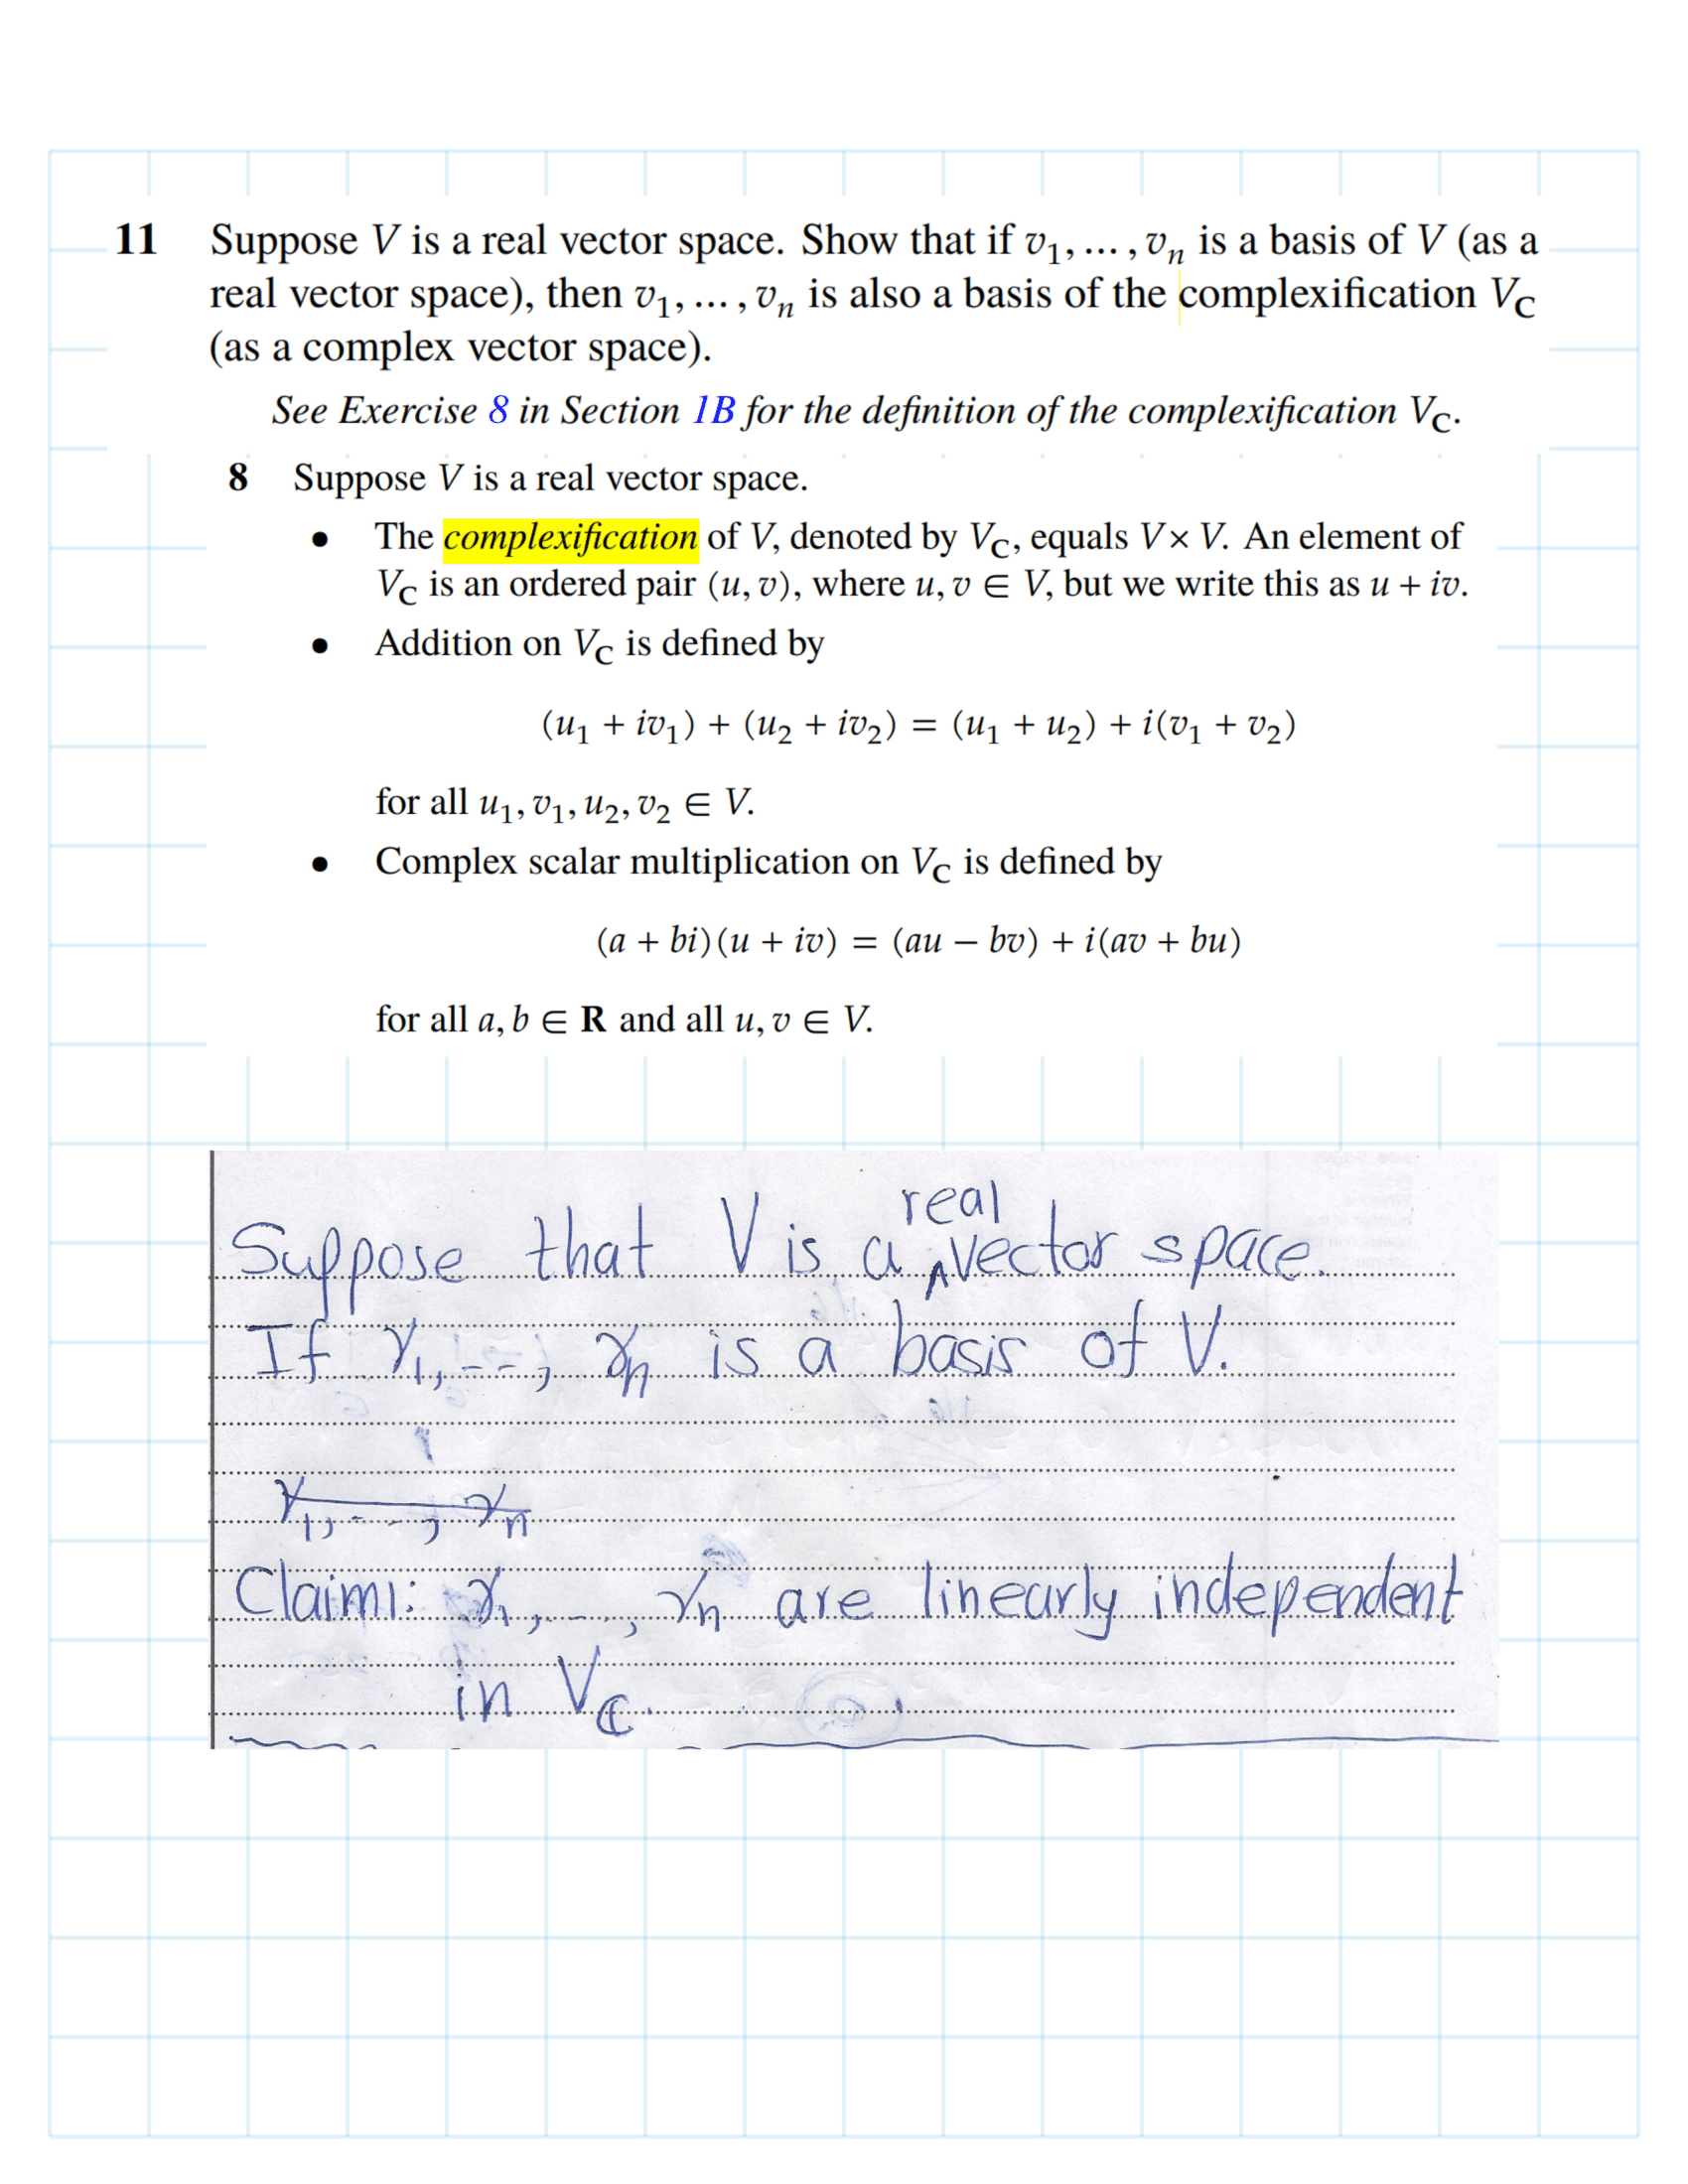 11 Suppose V is a real vector space. Show that if v₁, … , vₙ is a basis of V (as a
real vector space), then v₁, … , vₙ is also a basis of the complexification V_C
(as a complex vector space).
See Exercise 8 in Section 1B for the definition of the complexification V_C.
8 Suppose V is a real vector space.
• The complexification of V, denoted by V_C, equals V × V. An element of
V_C is an ordered pair (u, v), where u, v ∈ V, but we write this as u + iv.
• Addition on V_C is defined by
(u₁ + iv₁) + (u₂ + iv₂) = (u₁ + u₂) + i(v₁ + v₂)
for all u₁, v₁, u₂, v₂ ∈ V.
• Complex scalar multiplication on V_C is defined by
(a + bi)(u + iv) = (au − bv) + i(av + bu)
for all a, b ∈ R and all u, v ∈ V.
Suppose that V is a real vector space.
If γ₁, ---, γₙ is a basis of V.
γ₁, ---, γₙ
Claim1: γ₁, ---, γₙ are linearly independent
in V_ℂ.